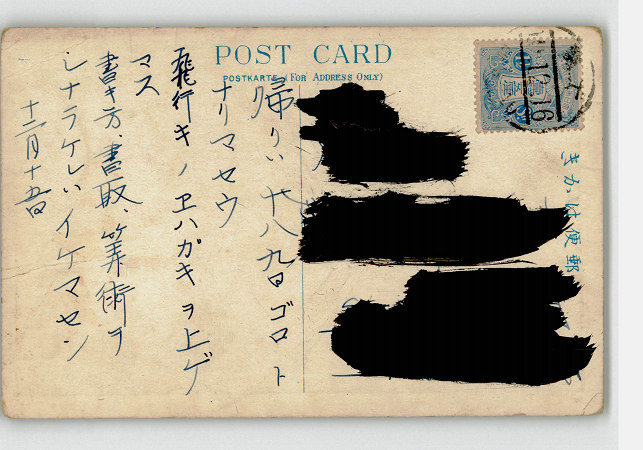 POST CARD
POSTKARTE (FOR ADDRESS ONLY)
きかは便郵
帰りハ廿八九日ゴロト
ナリマセウ
飛行キノヱハガキヲ上ゲ
マス
書キ方、書取、算術ヲ
シナラケレハイケマセン
十二月十五日